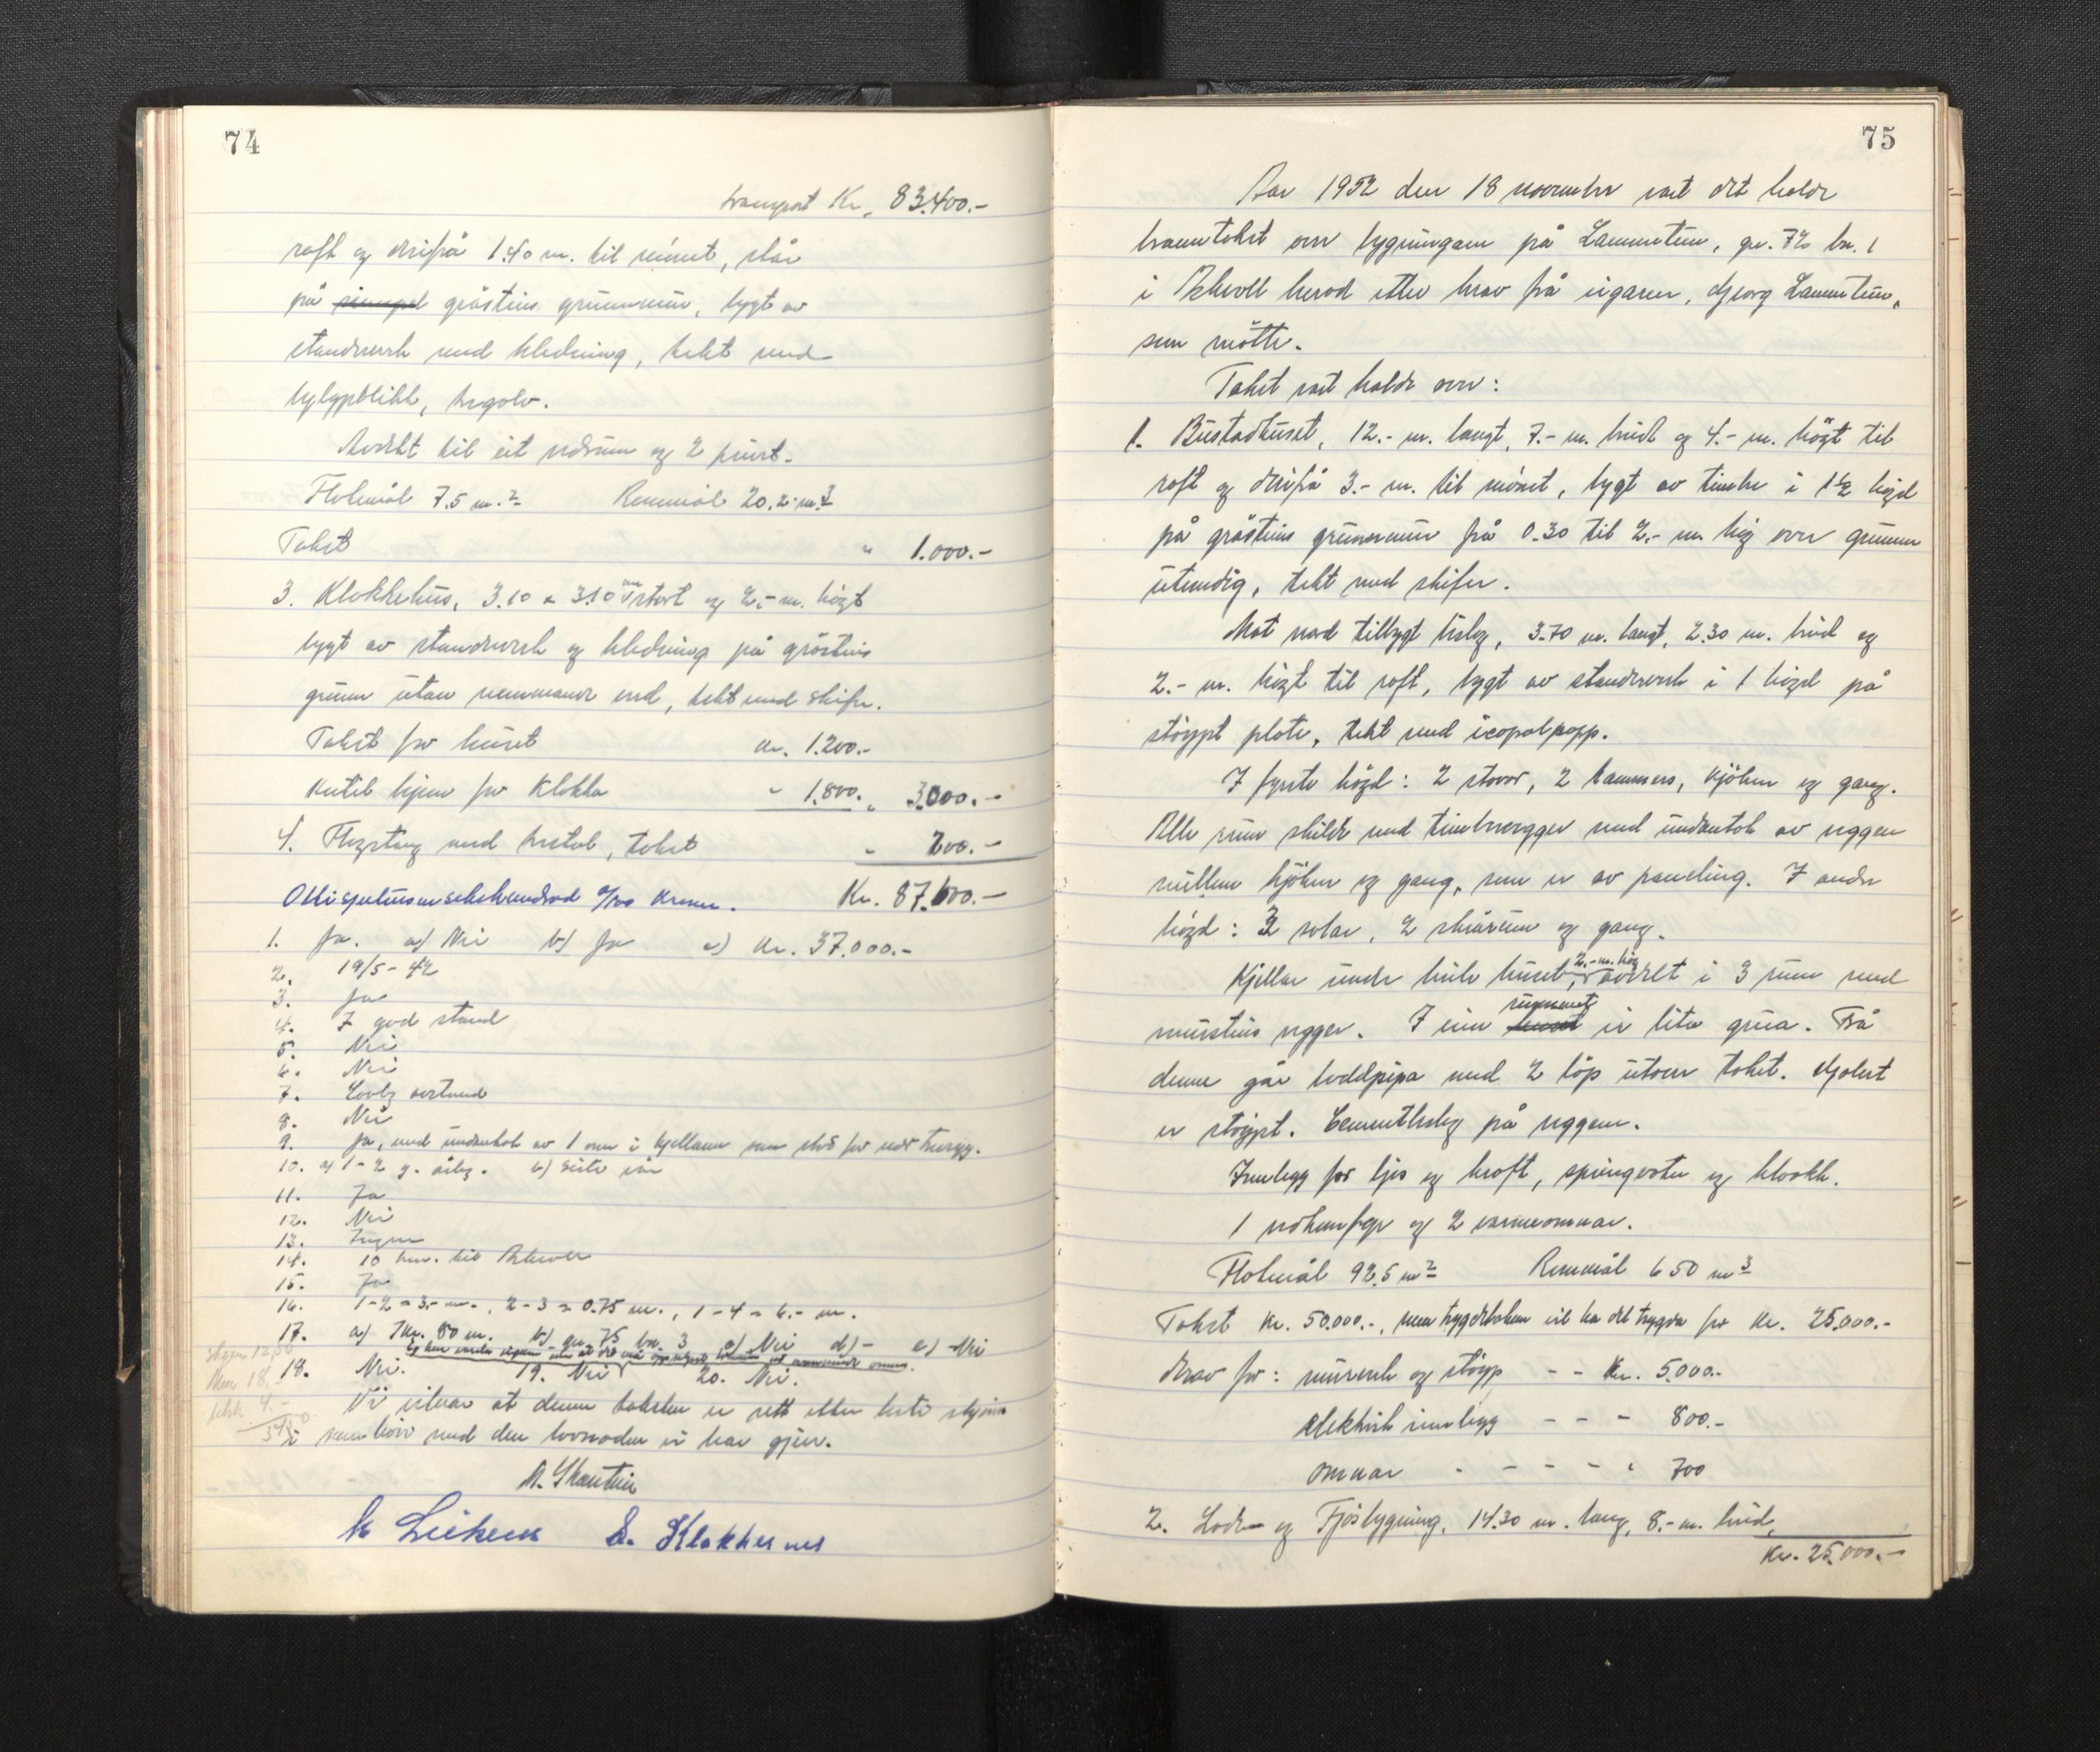 74
transport Kr. 83.400.-
roft og derifrå 1.40 m. til mönet, står
på gråsteins grunnmur, bygt av
standverk med kledning, tekt med
bylgjeblikk, tregolv.
Avdelt til eit vedrum og 2 privet.
Flatemål 7.5 m.² Rommål 20.2 m.³
Takst " 1.000.-
3. Klokkehus, 3.10 x 3.10 m stort og 2.- m. högt
bygt av standverk og kledning på gråsteins
grunn utan nemnande verd, tekt med skifer.
Takst for huset kr. 1.200.-
for klokka " 1.800. " 3.000.-
4. Flagstong med takst " 200.-
Åttisjutusensekshundrad 0/100 kroner. Kr. 87.600.-
1. Ja. a) Nei b) Ja c) Kr. 37.000.-
2. 19/5-42
3. Ja
4. I god stand
5. Nei
6. Nei
7. Lovleg avstand
8. Nei
9. Ja, med undantak av 1 omn i kjellaren som står for nær trevegg.
10. a) 1-2 g. årleg. b) Siste vår
11. Ja
12. Nei
13. Ingen
14. 10 km. til Askvoll
15. Ja
16. 1-2 = 3.- m., 2-3 = 0.75 m., 1-4 = 6.- m.
17. a) Ikr. 80 m. b) gn. 75 bn. 3 c) Nei d) - e) Nei
18. Nei. 19. Nei 20. Nei.
Vi vitnar at denne taksten er rett etter beste skjön
i samhöve med den lovnaden vi har gjeve.
75
Aar 1952 den 18 november vart det halde
branntakst over bygningane på Lammetun, gn. 72 bn. 1
i Askvoll herad etter krav frå eigaren, Georg Lammetun,
som mötte.
Takst vart halde over:
1. Bustadhuset, 12.- m. langt, 7.- m. breid og 4.- m. högt til
roft og derifrå 3.- m. til mönet, bygt av timber i 1½ högd
på gråsteins grunnmur frå 0.30 til 2.- m. hög over grunnen
utvendig, tekt med skifer.
Mot nord tilbygt bislag, 3.70 m. langt, 2.30 m. breid og
2.- m. högt til roft, bygt av standverk i 1 högd på
stöypt plate, tekt med icopalpapp.
I fyrste högd: 2 stover, 2 kammers, kjöken og gang.
Alle rum skilde med timbervegger med undantak av veggen
millom kjöken og gang, som er av paneling. I andre
högd: 3 salar, 2 skårum og gang.
Kjellar under heile huset, 2.- m. hög, avdelt i 3 rum med
mursteins vegger. I eine rummet er lita grua. Frå
denne går teglpipa med 2 löp utover taket. Golvet
er stöypt. Cementbeslag på veggene.
Innlegg for ljos og kraft, springvatn og kloakk.
1 vedkomfyr og 2 varmeomnar.
Flatemål 92.5 m² Rommål 650 m³
Takst kr. 50.000.-, men trygdetakaren vil ha det trygda for kr. 25.000.-
Av dette for: murverk og stöyp - - Kr. 5.000.-
elektrisk innlegg - - - 800.-
omnar - - - - " 700
2. Lade- og Fjösbygning, 14.30 m. lang, 8.- m. breid,
Kr. 25.000.-